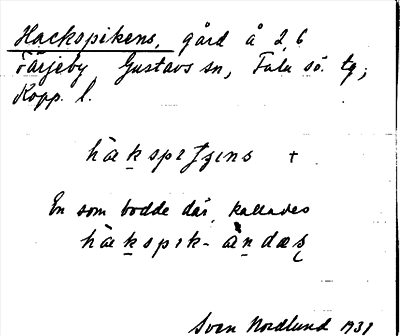 Hackspikens, gård å 2,6
Färjeby Gustavs sn, Falu sö. tg;
Kopp. l.
hàkspıȷ̃ens +
En som bodde där kallades
hàkspık-àndæs
Sven Nordlund 1931